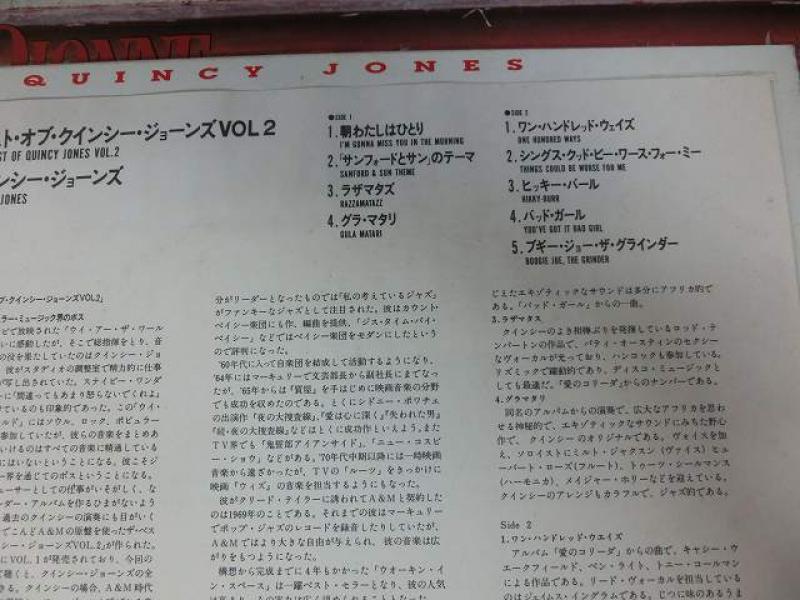 QUINCY JONES
スト・オブ・クインシー・ジョーンズVOL2
ST OF QUINCY JONES VOL.2
ンシー・ジョーンズ
JONES
●SIDE 1
1.朝わたしはひとり
I'M GONNA MISS YOU IN THE MORNING
2.「サンフォードとサン」のテーマ
SANFORD & SUN THEME
3.ラザマタズ
RAZZAMATAZZ
4.グラ・マタリ
GULA MATARI
●SIDE 2
1.ワン・ハンドレッド・ウェイズ
ONE HUNDRED WAYS
2.シングス・クッド・ビー・ワース・フォー・ミー
THINGS COULD BE WORSE FOR ME
3.ヒッキー・バール
HIKKY-BURR
4.バッド・ガール
YOU'VE GOT IT BAD GIRL
5.ブギー・ジョー・ザ・グラインダー
BOOGIE JOE, THE GRINDER
ブ・クインシー・ジョーンズVOL2」
ュラー・ミュージック界のボス
ビで放映された「ウイ・アー・ザ・ワール
いに感動したが、そこで総指揮をとり、音
の役を果たしていたのはクインシー・ジョ
彼がスタジオの調整室で精力的に仕事
が写し出されていた。スティビー・ワンダ
ーに「間違ってもあまり怒らないでくれよ」
けているのも印象的であった。この「ウイ・
ールド」にはソウル、ロック、ポピュラー
参加していたが、彼らの音楽をまとめあ
いけるのはすべての音楽に精通している
にはいないということになる。彼こそジ
ー界を通じてのボスということになる。
ューサーとしての仕事がいそがしく、な
ダー・アルバムを作るひまがないよう
過去のクインシーの演奏にも目がいく
でこんどA&Mの原盤を使ったザ・ベス
シー・ジョーンズVOL.2」が作られた。
にVOL.1が発売されており、今回の
て聴くと、クインシー・ジョーンズの全
きる。クインシーの場合、A&M時代
分がリーダーとなったものでは「私の考えているジャズ」
がファンキーなジャズとして注目された。彼はカウント・
ベイシー楽団にも作、編曲を提供、「ジス・タイム・バイ・
ベイシー」などではベイシー楽団をモダンにしたという
ので評判になった。
'60年代に入って自楽団を結成して活動するようになり、
'64年にはマーキュリーで文芸部長から副社長にまでなっ
たが、'65年からは「質屋」を手はじめに映画音楽の分野
でも成功を収めたのである。とくにシドニー・ポワチェ
の出演作「夜の大捜査線」、「愛は心に深く」「失われた男」
「続・夜の大捜査線」などはとくに成功作といえよう。また
TV界でも「鬼警部アイアンサイド」、「ニュー・コスビ
ー・ショウ」などがある。'70年代中期以降には一時映画
音楽から遠ざかったが、TVの「ルーツ」をきっかけに
映画「ウィズ」の音楽を担当するようにもなった。
彼がクリード・テイラーに誘われてA&Mと契約した
のは1969年のことである。それまでの彼はマーキュリー
でポップ・ジャズのレコードを録音したりしていたが、
A&Mではより大きな自由が与えられ、彼の音楽は広
がりをもつようになった。
構想から完成までに4年もかかった「ウオーキン・イ
ン・スペース」は一躍ベスト・セラーとなり、彼の人気
じえたエキゾティックなサウンドは多分にアフリカ的で
ある。「バッド・ガール」からの一曲。
3.ラザマタス
クインシーのよき相棒ぶりを発揮しているロッド・テ
ンパートンの作品で、パティ・オースティンのセクシー
なヴォーカルが光っており、ハンコックも参加している。
リズミックで躍動的であり、ディスコ・ミュージックと
しても最適だ。「愛のコリーダ」からのナンバーである。
4.グラマタリ
同名のアルバムからの演奏で、広大なアフリカを思わ
せる神秘的で、エキゾティックなサウンドにみちた野心
作で、クインシーのオリジナルである。ヴォイスを加
え、ソロイストにミルト・ジャクスン（ヴァイス）ヒュ
ーバート・ローズ（フルート）、トゥーツ・シールマンス
（ハーモニカ）、メイジャー・ホリーなどを迎えている。
クインシーのアレンジもカラフルで、ジャズ的である。
Side 2
1.ワン・ハンドレッド・ウエイズ
アルバム「愛のコリーダ」からの曲で、キャシー・ウ
エークフィールド、ベン・ライト、トニー・コールマン
による作品である。リード・ヴォーカルを担当している
のはジェイムス・イングラムである。じつに味のあるうま